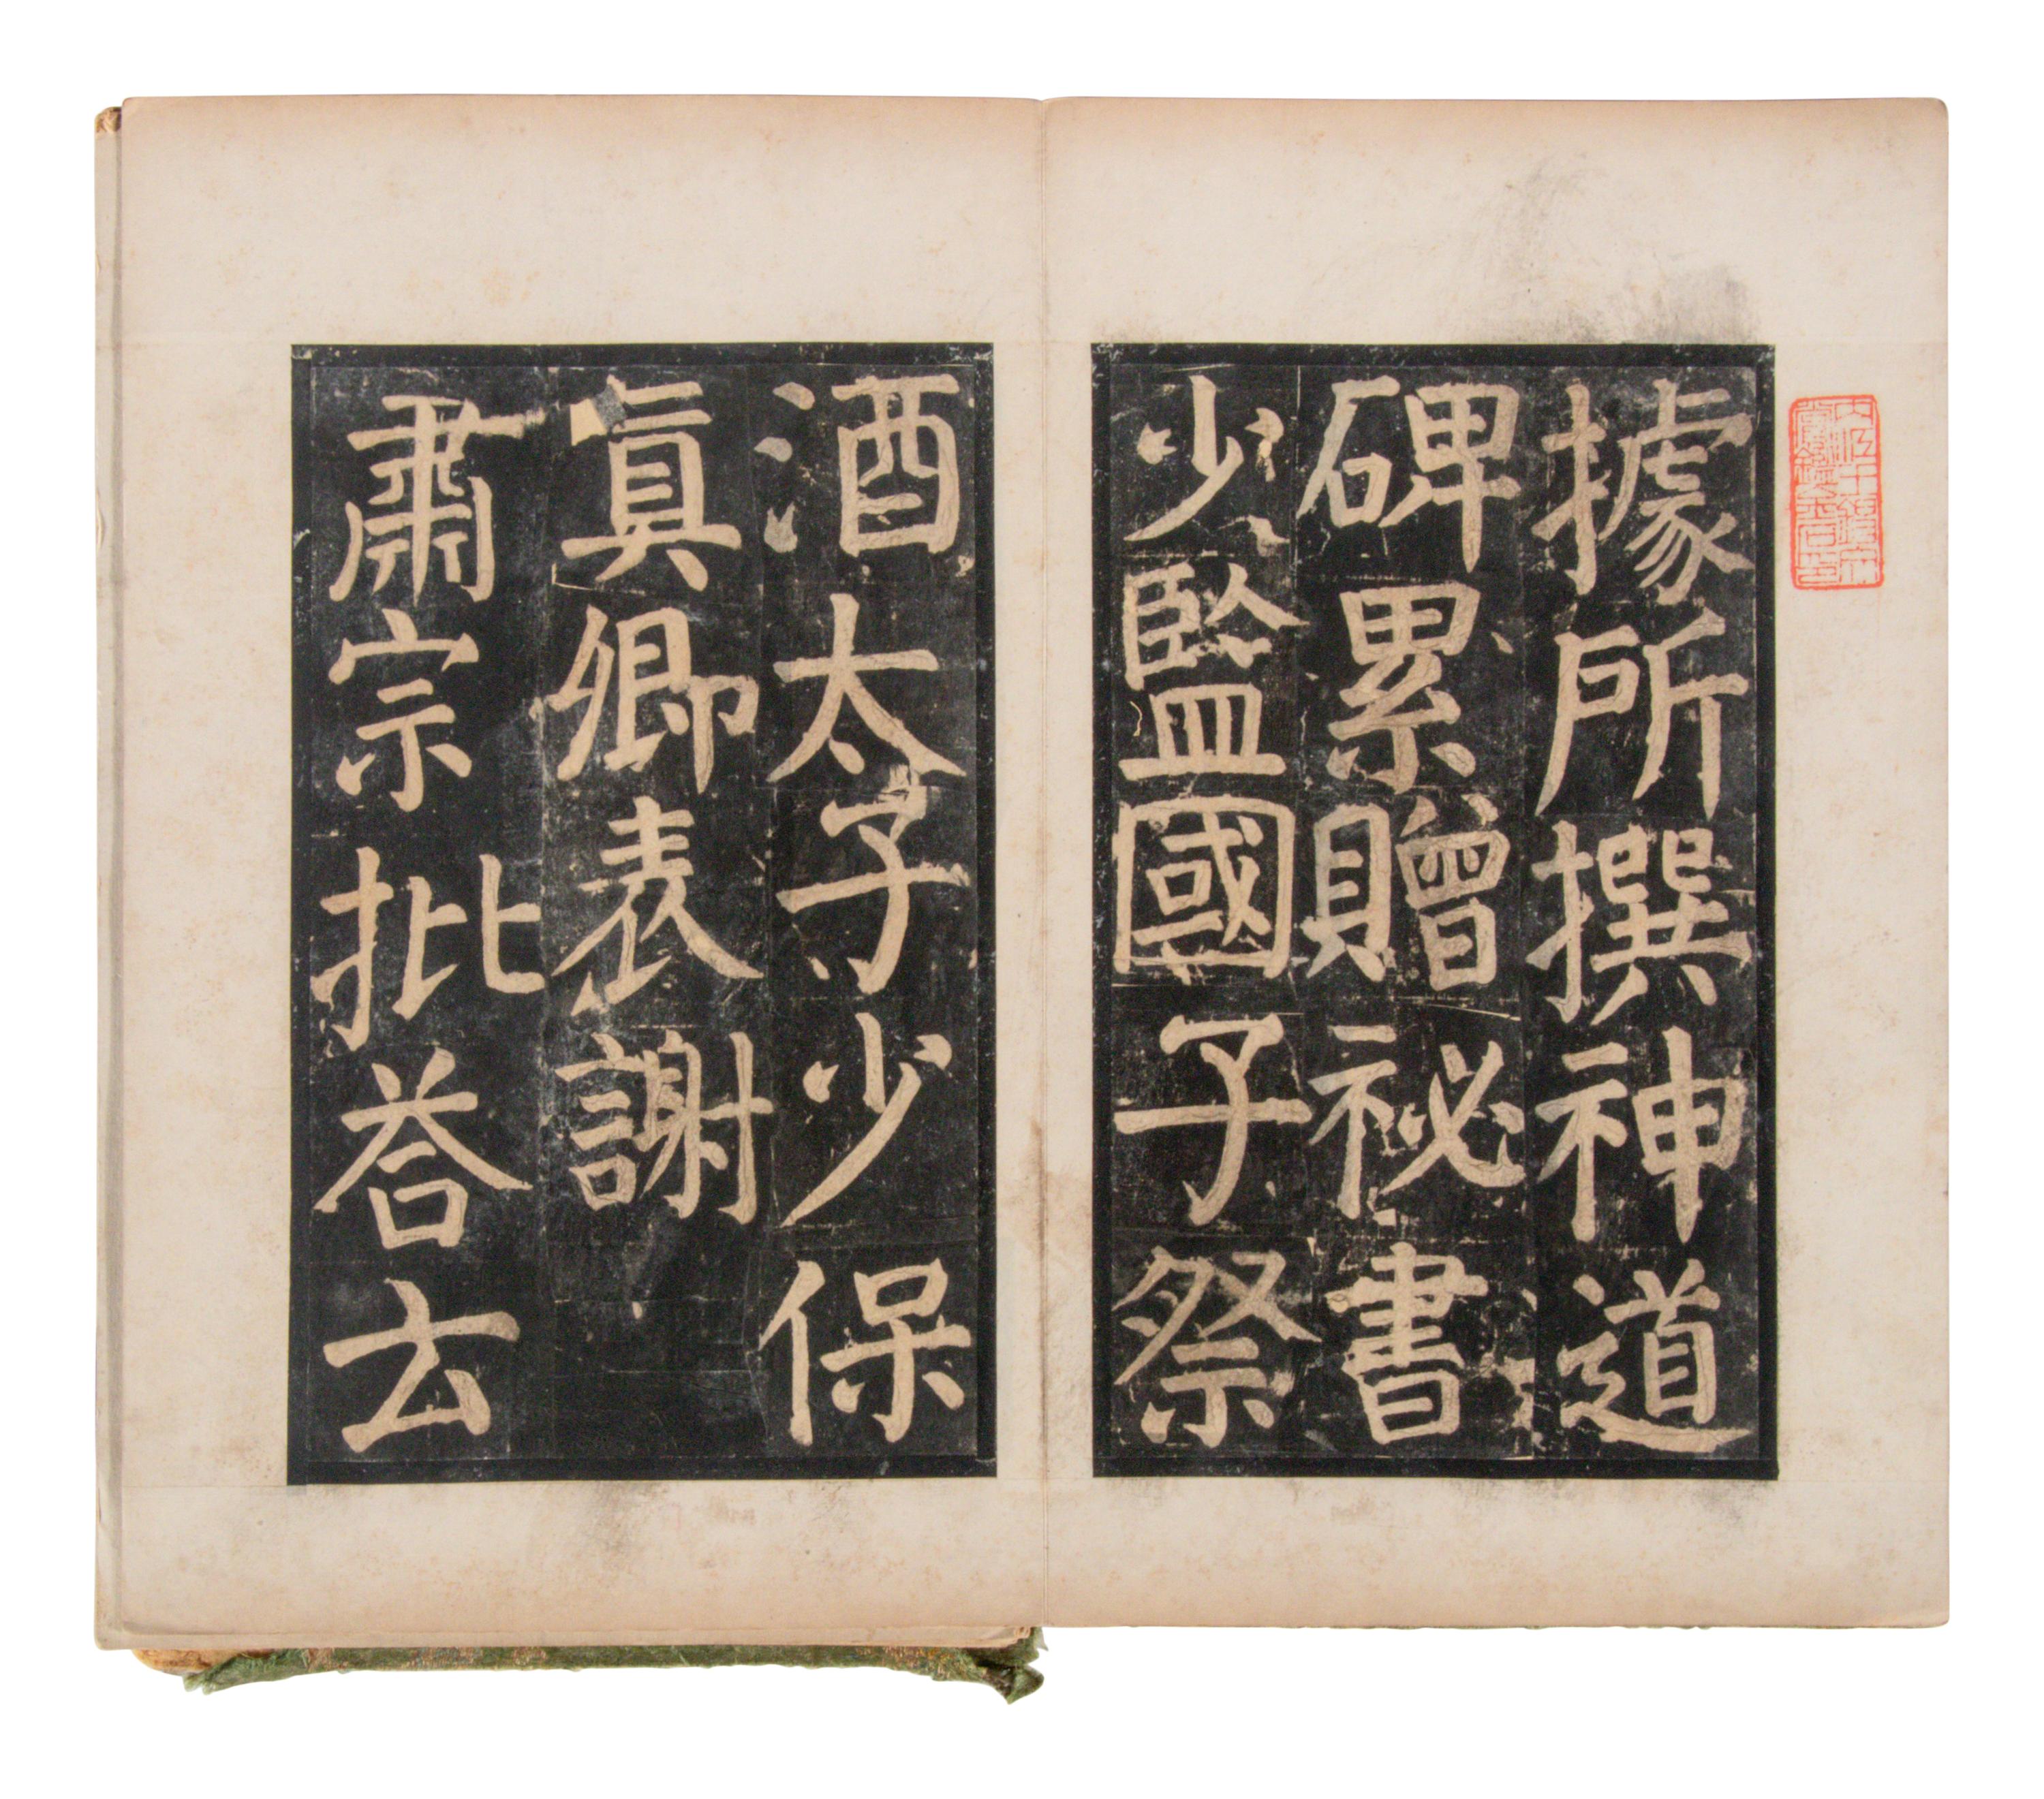 據所撰神道
碑累贈祕書
少監國子祭
酒太子少保
真卿表謝
肅宗批荅云